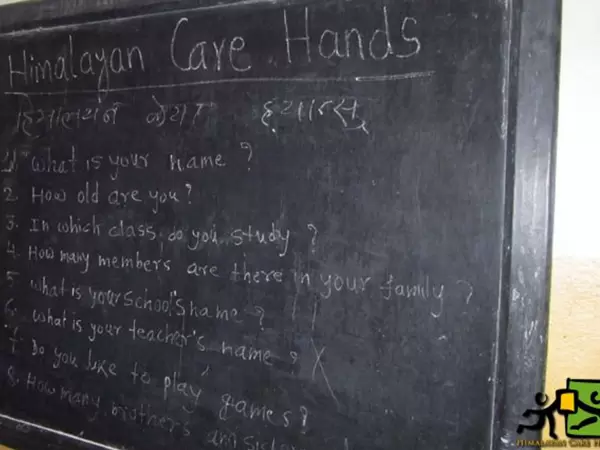 Himalayan Care Hands
हिमालयन केयर ह्याण्ड्स
1. What is your name ?
2. How old are you ?
3. In which class do you study ?
4. How many members are there in your family ?
5. What is your School's name ?
6. What is your teacher's name ? X
7. Do you like to play games ?
8. How many brothers and sister
HIMALAYAN CARE H